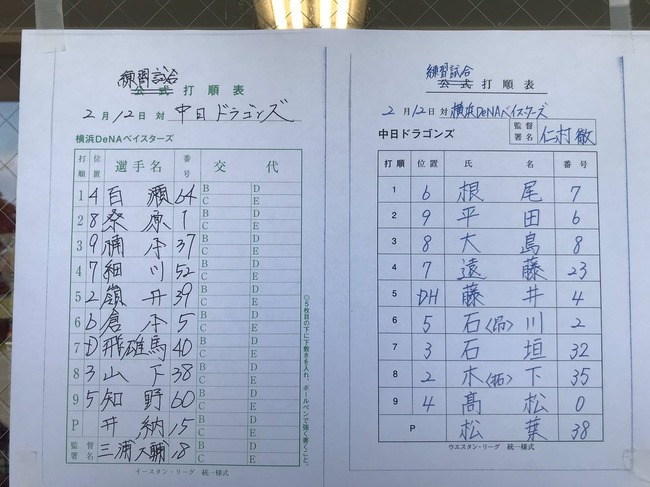 練習試合
公式 打順表
2月12日 対 中日ドラゴンズ
横浜DeNAベイスターズ
打順 位置 選手名 番号 交代
1 4 百瀬 64 B D C E
2 8 桑原 1 B D C E
3 9 楠本 37 B D C E
4 7 細川 52 B D C E
5 2 嶺井 39 B D C E
6 6 倉本 5 B D C E
7 D 飛雄馬 40 B D C E
8 3 山下 38 B D C E
9 5 知野 60 B D C E
P 井納 15 B D C E
監督署名 三浦大輔 18 B D C E
イースタン・リーグ 統一様式
◎5枚目の下に下敷きを入れ、ボールペンで強く書くこと。
練習試合
公式 打順表
2月12日 対 横浜DeNAベイスターズ
中日ドラゴンズ 監督署名 仁村徹
打順 位置 氏名 番号
1 6 根尾 7
2 9 平田 6
3 8 大島 8
4 7 遠藤 23
5 DH 藤井 4
6 5 石〈昂〉川 2
7 3 石垣 32
8 2 木〈拓〉下 35
9 4 髙松 0
P 松葉 38
ウエスタン・リーグ 統一様式